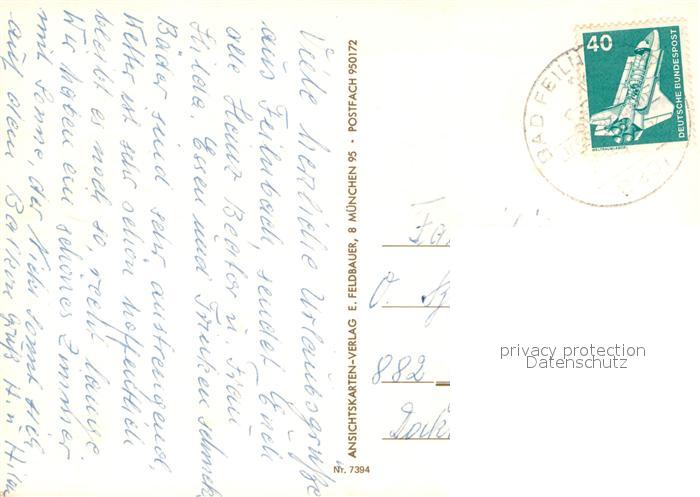 Viele herzliche Urlaubsgrüße
aus Feilnbach, sendet Euch
alle Heinz Beator u. Frau
Hilde. Essen und Trinken schmeckt
Bäder sind sehr anstrengend,
Wetter ist sehr schön hoffentlich
bleibt es noch so, recht lange
Wir haben ein schönes Zimmer
mit Sonne, der Nicki sonnt sich
auf dem Balkon Gruß H. u. Hilde
ANSICHTSKARTEN-VERLAG E. FELDBAUER, 8 MÜNCHEN 95 · POSTFACH 950172
Nr. 7394
40
DEUTSCHE BUNDESPOST
WELTRAUMLABOR
BAD FEILN
Fa
O.
882
privacy protection
Datenschutz